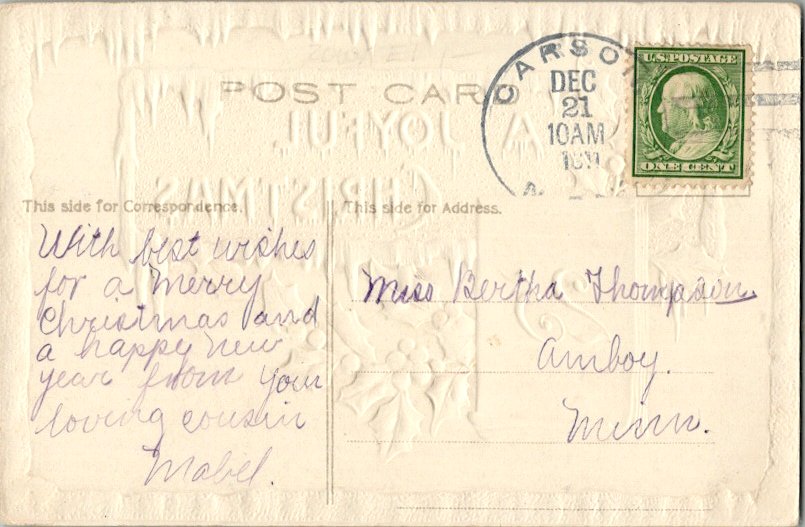 POST CARD
CARSON
DEC
21
10AM
U.S. POSTAGE
ONE CENT
A JOYFUL
CHRISTMAS
This side for Correspondence.
This side for Address.
With best wishes
for a merry
Christmas and
a happy new
year from your
loving cousin
Mabel.
Miss Bertha Thompson
Amboy.
Minn.